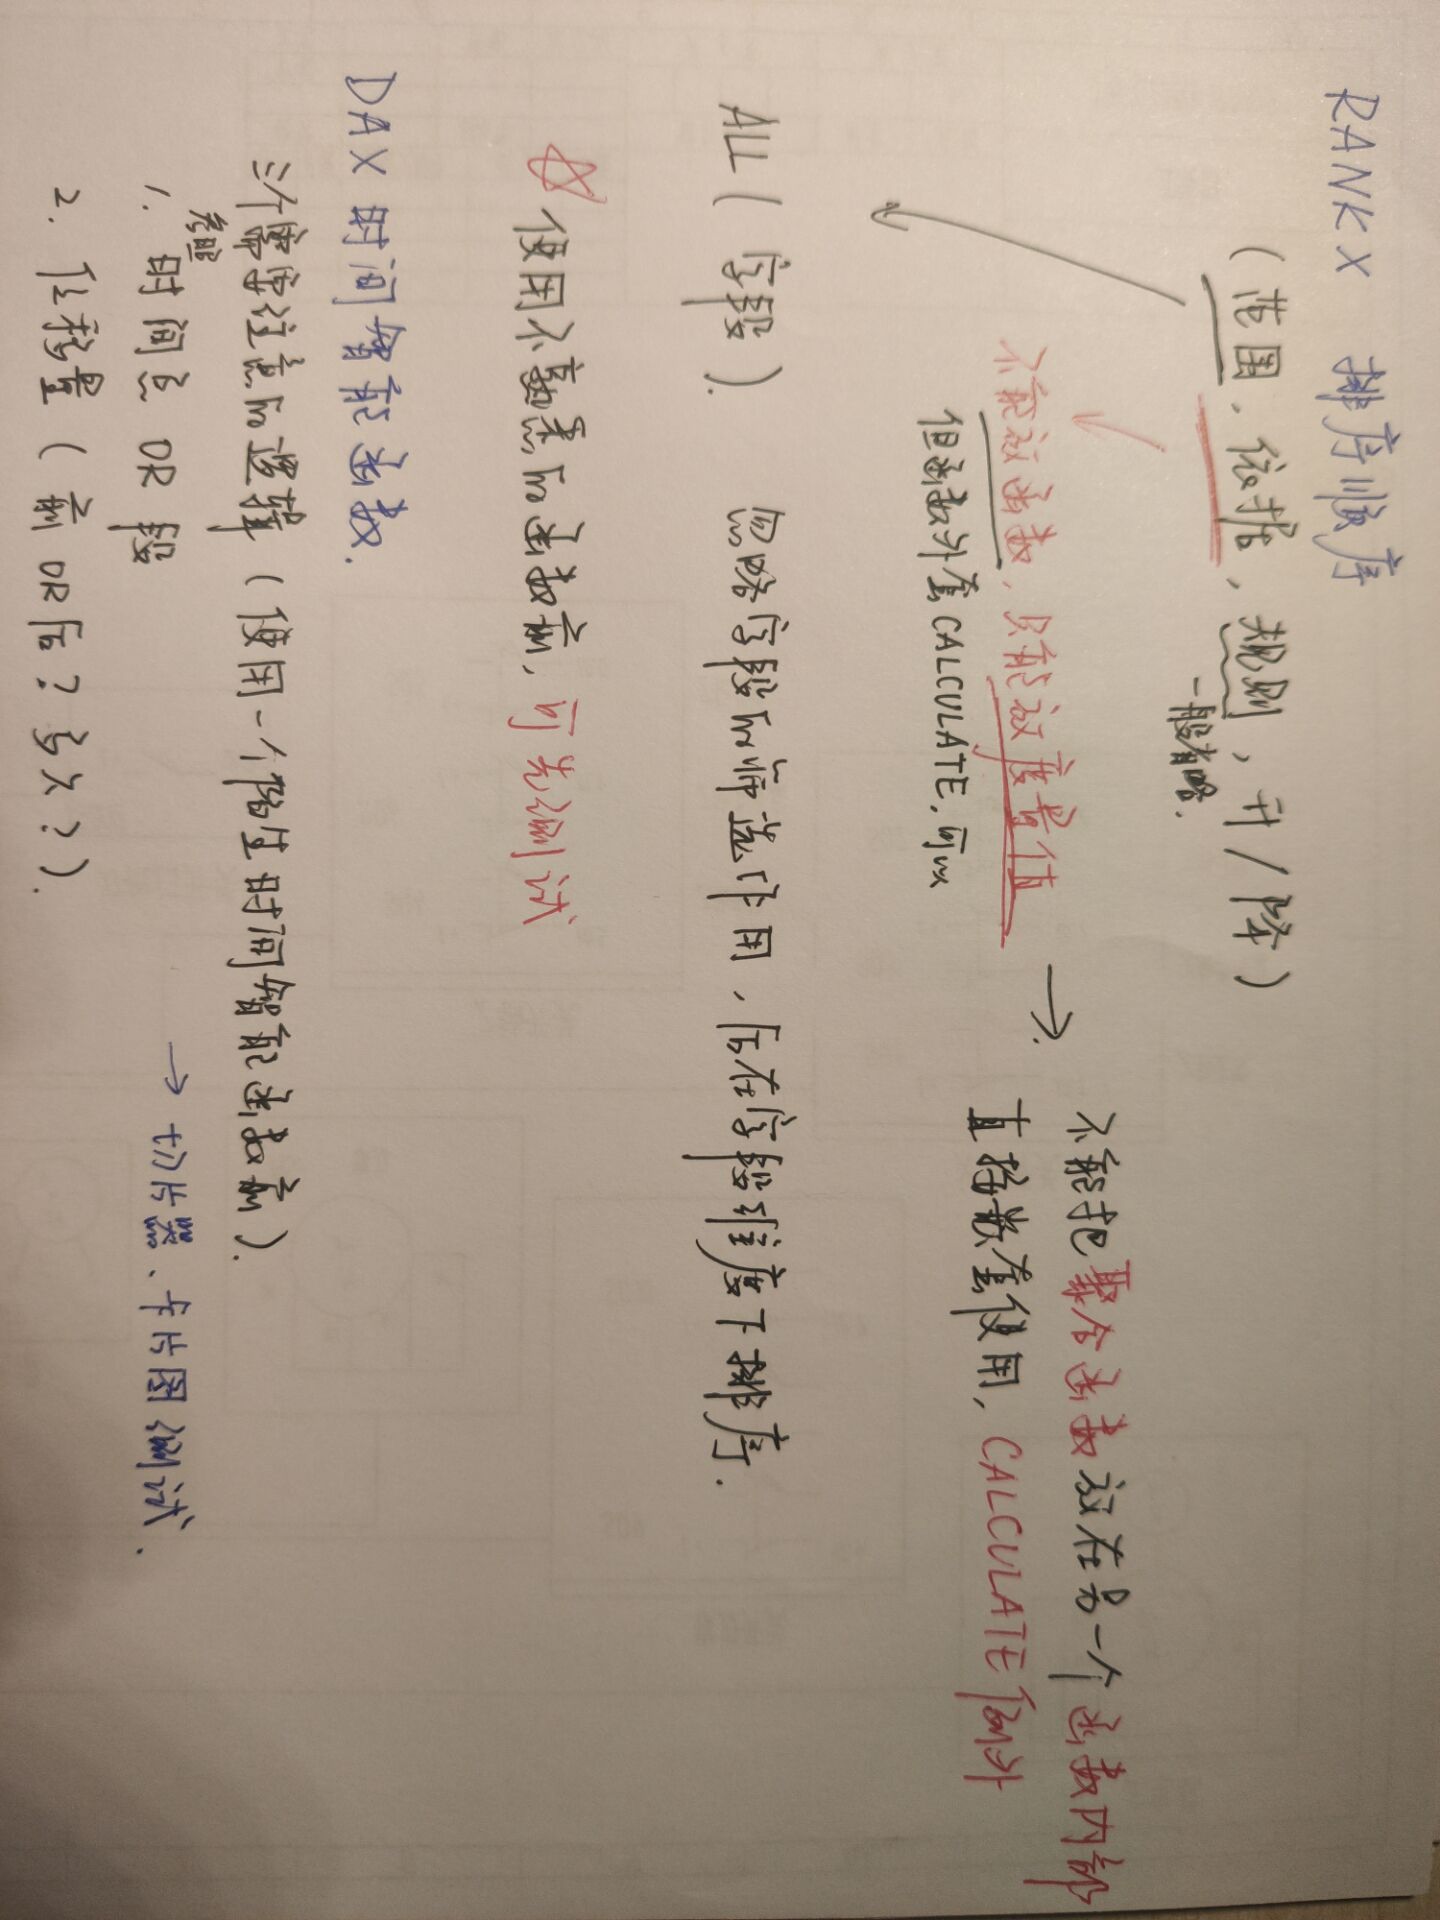 RANKX 排序顺序
(范围, 依据, 规则, 升/降)
一般省略.
不能放函数, 只能放度量值
但函数外套CALCULATE, 可以
→ 不能把聚合函数放在另一个函数内部
直接嵌套使用, CALCULATE例外
ALL( 字段). 忽略字段的筛选作用, 后在字段维度下排序.
☆ 使用不熟悉的函数前, 可先测试
DAX 时间智能函数.
三个需要注意的逻辑 (使用一个陌生时间智能函数前).
1. 参照时间点 OR 段
→ 切片器、卡片图测试.
2. 位移量 (前 OR 后? 多久?).